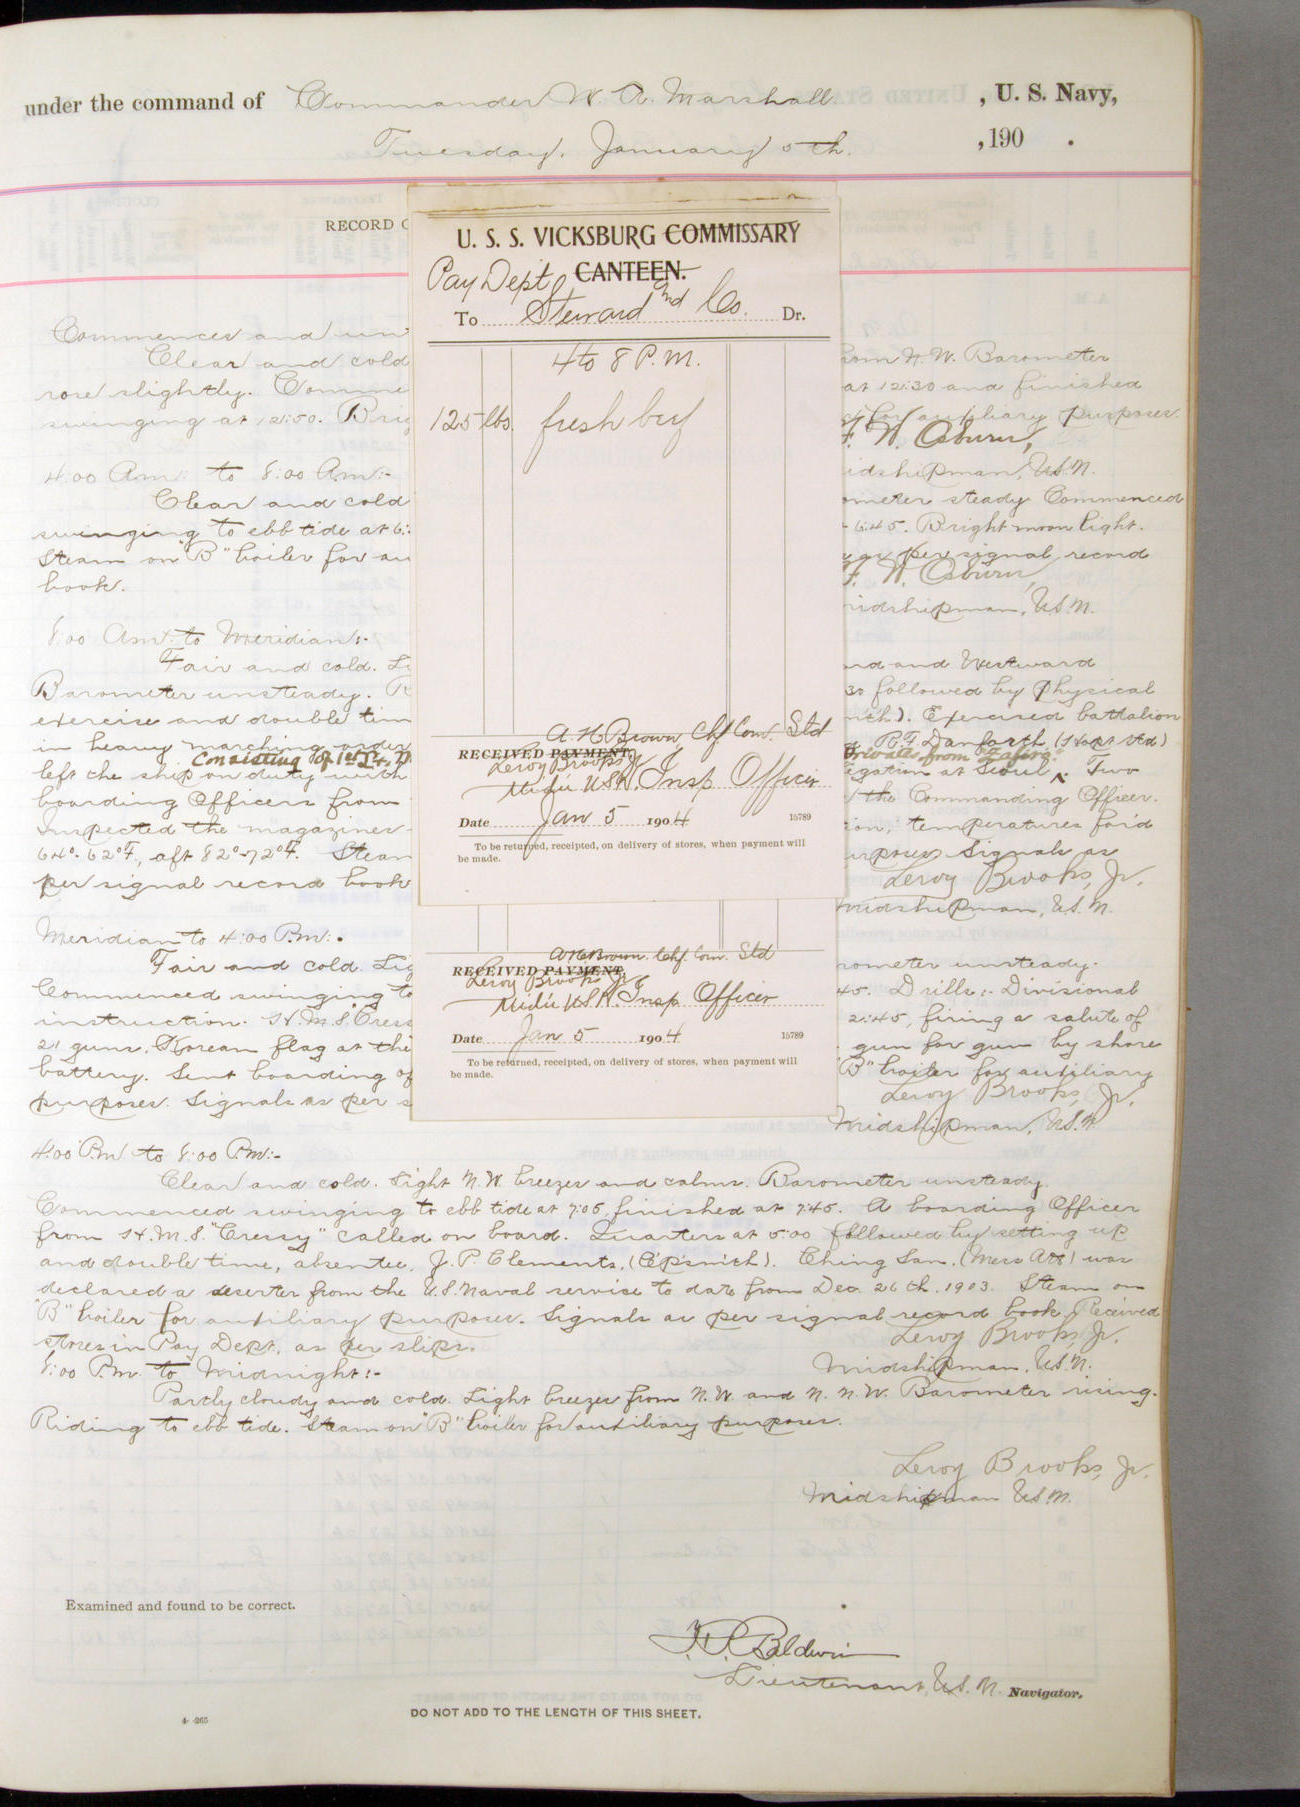 under the command of Commander W. A. Marshall, U. S. Navy,
Tuesday, January 5th. , 190 .
RECORD O
Commences and un
Clear and cold
rose slightly. Comme
swinging at 12:50. Brig
4:00 Am: to 8:00 Am:-
Clear and cold
swinging to ebb tide at 6:
Steam on "B" boiler for au
book.
8:00 Am: to Meridian:-
Fair and cold. Li
Barometer unsteady.
exercise and double tim
in heavy marching order
Consisting of 1st Lt.
left the ship on duty with
boarding Officers from
Inspected the magazines
64°-62°F., aft 82°-72°F. Steam
per signal record book
Meridian to 4:00 P.m:-
Fair and cold. Lig
Commenced swinging to
instruction. H.M.S. Cress
21 guns, Korean flag at the
battery. Sent boarding of
purposes. Signals as per s
U. S. S. VICKSBURG COMMISSARY
CANTEEN.
Pay Dept
To Steward and Co. Dr.
4 to 8 P.M.
125 lbs. fresh beef
A H Brown Chf Com. Std
RECEIVED PAYMENT,
Leroy Brooks Jr
Mid'n USN. Insp Officer
Date Jan 5 1904 15789
To be returned, receipted, on delivery of stores, when payment will
be made.
A H Brown Chf. Com. Std
RECEIVED PAYMENT,
Leroy Brooks Jr
Mid'n USN. Insp Officer
Date Jan 5 1904 15789
To be returned, receipted, on delivery of stores, when payment will
be made.
from N.W. Barometer
at 12:30 and finished
for auxiliary purposes.
F. W. Osburn,
idshipman, U.S.N.
ometer steady Commenced
6:45. Bright moon light.
as per signal record
F. W. Osburn,
midshipman, U.S.N.
ard and Westward
30 followed by physical
nch). Exercised battalion
R.T. Danforth (Hosp. Std)
Private from Zafiro
egation at Seoul. Two
the Commanding Officer.
ion, temperatures for'd
urposes Signals as
Leroy Brooks, Jr.
midshipman, U.S.N.
rometer unsteady.
45. Drills:- Divisional
2:45, firing a salute of
gun for gun by shore
"B" boiler for auxiliary
Leroy Brooks, Jr.
Midshipman, U.S.N.
4:00 P.m to 8:00 P.m:-
Clear and cold. Light N.W. breezes and calms. Barometer unsteady.
Commenced swinging to ebb tide at 7:05, finished at 7:45. A boarding Officer
from H.M.S. "Cressy" called on board. Quarters at 5:00 followed by setting up
and double time, absentee, J. P. Clements, (Ap's'n'ch). Ching San, (Mess Att) was
declared a deserter from the U.S. Naval service to date from Dec. 26th. 1903. Steam on
"B" boiler for auxiliary purposes. Signals as per signal record book. Received
stores in Pay Dept. as per slips.
Leroy Brooks, Jr.
Midshipman, U.S.N.
8:00 P.m. to Midnight:-
Partly cloudy and cold. Light breezes from N.W. and N. N.W. Barometer rising.
Riding to ebb tide. Steam on "B" boiler for auxiliary purposes.
Leroy Brooks, Jr.
Midshipman U.S.N.
Examined and found to be correct.
Baldwin
Lieutenant, U.S.N. Navigator.
DO NOT ADD TO THE LENGTH OF THIS SHEET.
4-265